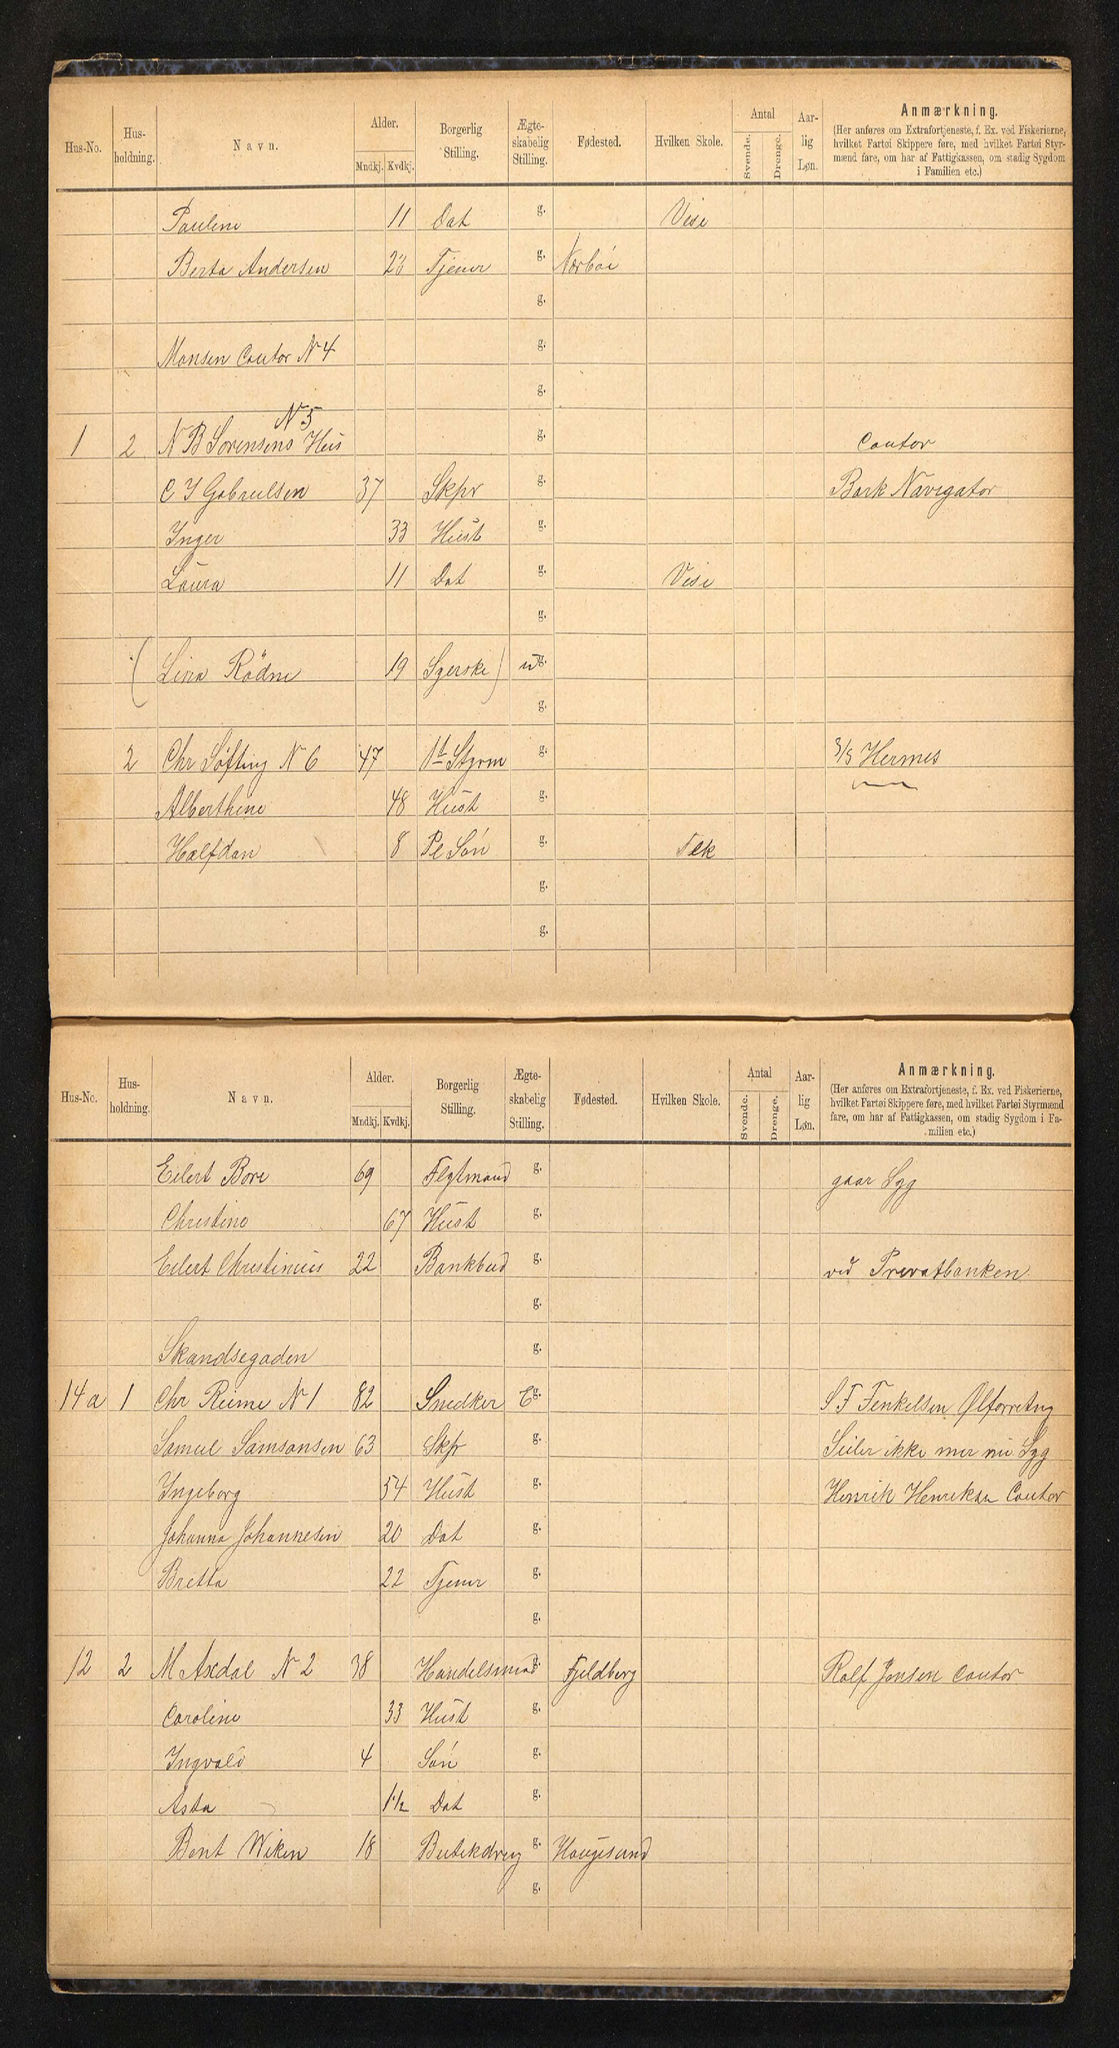 Hus-No. Hus-holdning. Navn. Alder. Mndkj. Kvdkj. Borgerlig Stilling. Ægte-skabelig Stilling. Fødested. Hvilken Skole. Antal Svende. Drenge. Aar-lig Løn. Anmærkning.
(Her anføres om Extrafortjeneste, f. Ex. ved Fiskerierne,
hvilket Fartøi Skippere føre, med hvilket Fartøi Styr-
mænd fare, om har af Fattigkassen, om stadig Sygdom
i Familien etc.)
Pauline 11 Dat g. Vise
Berta Andersen 23 Tjener g. Nærboi
g.
Monsen Contor N 4 g.
g.
N 5
1 2 N B Sorensens Hus g. Contor
C I Gabrielsen 37 Skpr g. Bark Navigator
Inger 33 Hust g.
Laura 11 Dat g. Vise
g.
(Lina Rödne 19 Syerske) u g.
g.
2 Chr Søfting N 6 47 1st Styrm g. S/S Hermes
Alberthine 48 Hust g.
Halfdan 8 Pl Søn g. Flk
g.
g.
Hus-No. Hus-holdning. Navn. Alder. Mndkj. Kvdkj. Borgerlig Stilling. Ægte-skabelig Stilling. Fødested. Hvilken Skole. Antal Svende. Drenge. Aar-lig Løn. Anmærkning.
(Her anføres om Extrafortjeneste, f. Ex. ved Fiskerierne,
hvilket Fartøi Skippere føre, med hvilket Fartøi Styrmænd
fare, om har af Fattigkassen, om stadig Sygdom i Fa-
milien etc.)
Eilert Bore 69 Flytmand g. gaar Syg
Christine 67 Hust g.
Eilert Christinius 22 Bankbud g. ved Prevatbanken
g.
Skandsegaden g.
14a 1 Chr Reime N 1 82 Snedker E g. S F Fenkelsen Ølforretng
Samuel Samsonsen 63 Skpr g. Seiler ikke mer nu Syg
Ingeborg 54 Hust g. Henrik Henriksen Contor
Johanna Johannesen 20 Dat g.
Bretta 22 Tjener g.
g.
12 2 M Axdal N 2 38 Handelsmand g. Fjeldberg Ralf Jensen Contor
Caroline 33 Hust g.
Ingvald 4 Søn g.
Asta 1½ Dat g.
Bent Wiken 18 Butikdreng g. Haugesund
g.